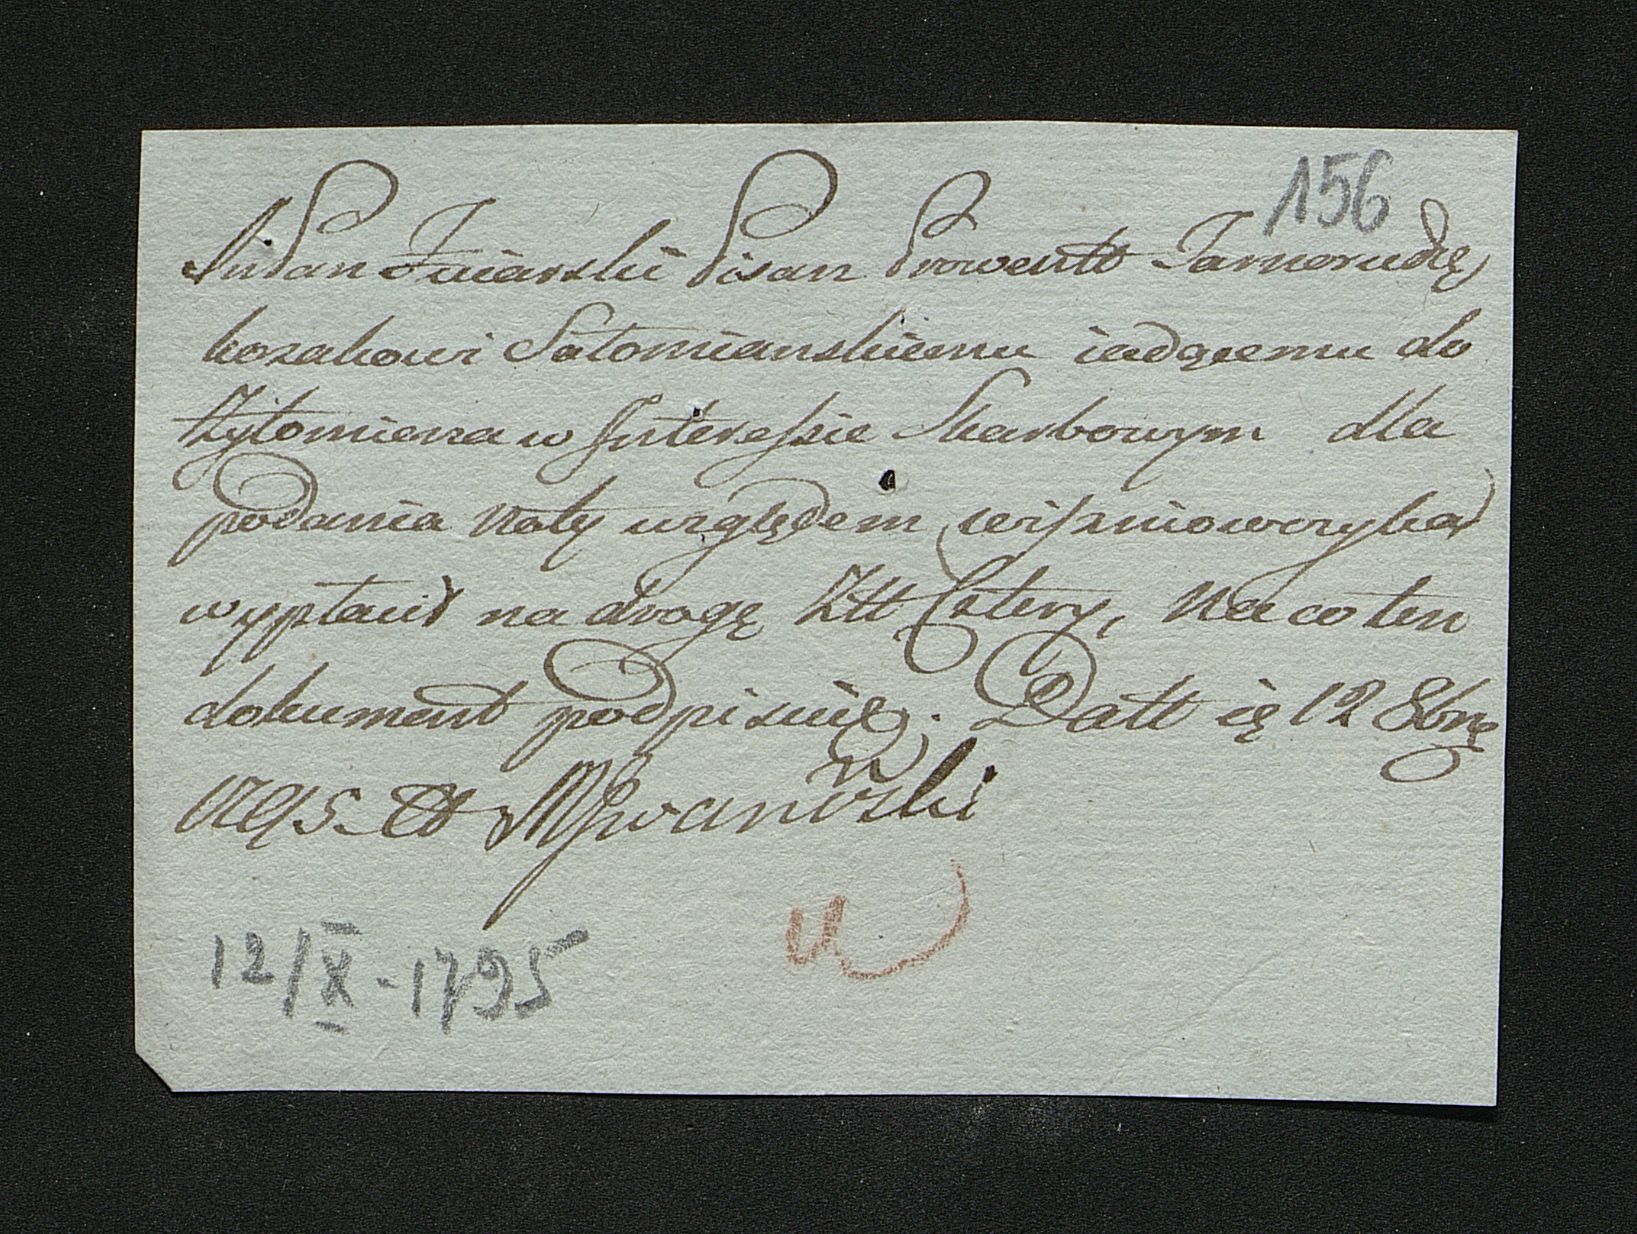 156
JmPan Zwiarski Pisarz Prowentt Tarnorudzę
kozakowi Satomianskiemu iadącemu do
Zytomierza w Interessie Skarbowym dla
podania noty względem wiszniowczyka
wypłacić na drogę Złt Cztery, na co ten
dokument podpisuię. Datt ię 12 8brę
1795 Iwanowski
12/X-1795